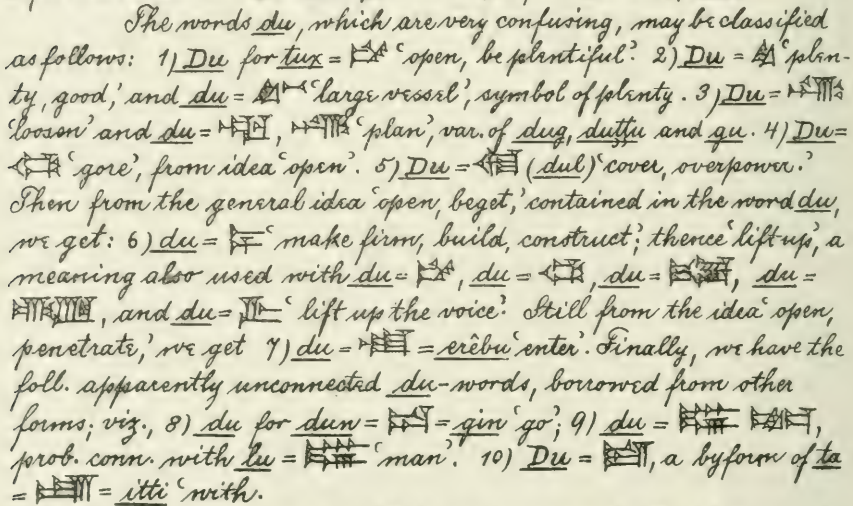 The words du, which are very confusing, may be classified
as follows: 1) Du for tux = 'open, be plentiful.' 2) Du = 'plen-
ty, good,' and du = 'large vessel', symbol of plenty. 3) Du =
'loosen' and du = , 'plan', var. of dug, duṭṭu and gu. 4) Du =
'gore', from idea 'open'. 5) Du = (dul) 'cover, overpower.'
Then from the general idea 'open, beget,' contained in the word du,
we get: 6) du = 'make firm, build, construct'; thence 'lift up', a
meaning also used with du = , du = , du = , du =
, and du = 'lift up the voice.' Still from the idea 'open,
penetrate,' we get 7) du = = erêbu 'enter'. Finally, we have the
foll. apparently unconnected du-words, borrowed from other
forms; viz., 8) du for dun = = gin 'go'; 9) du = ,
prob. conn. with lu = 'man'. 10) Du = , a byform of ta
= = itti 'with.